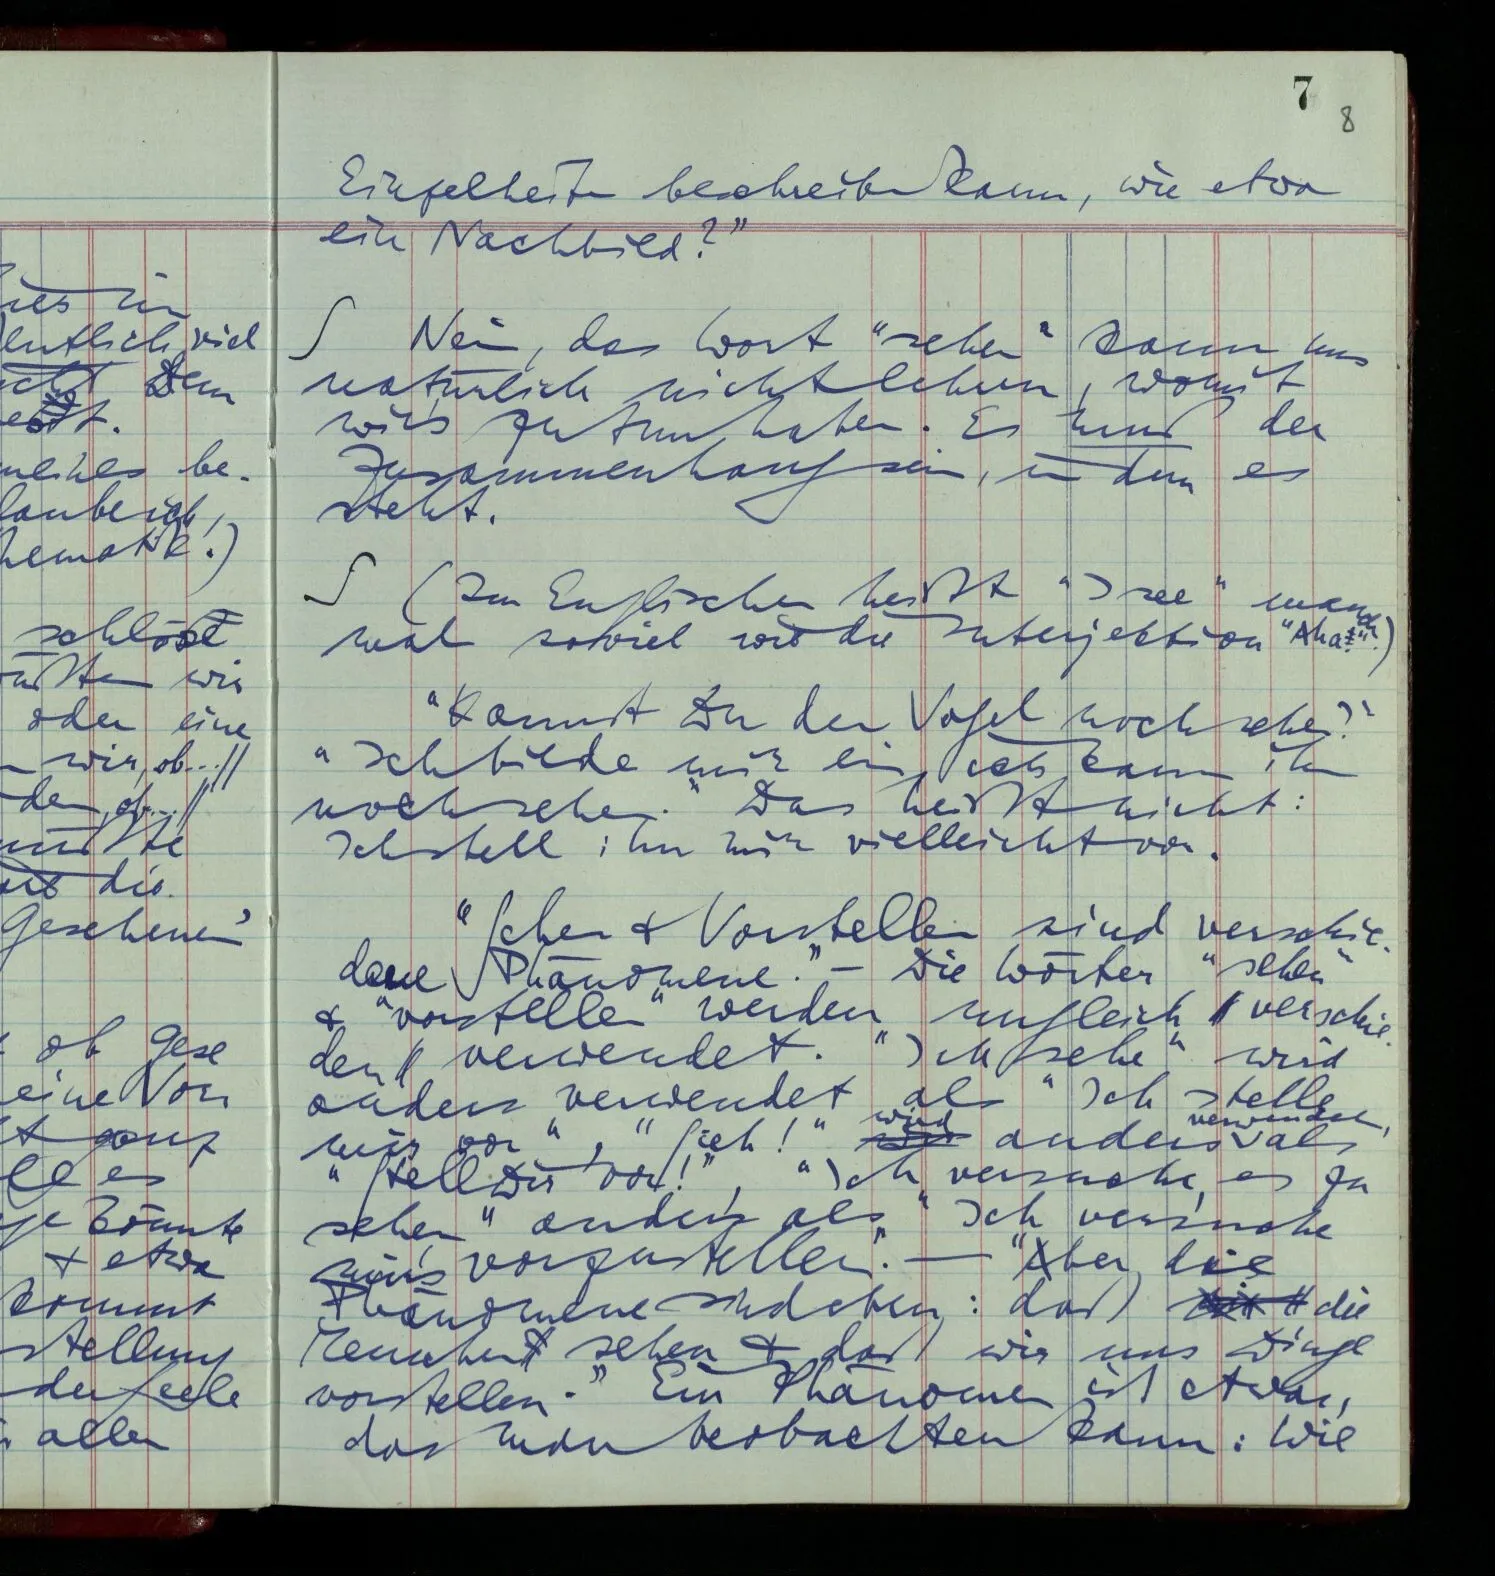 7
8
Einzelheiten beschreiben kann, wie etwa
ein Nachbild?"
∫ Nein, das Wort "sehen" kann uns
natürlich nicht lehren, womit
wir's zu tun haben. Es muß der
Zusammenhang sein, in dem es
steht.
∫ (Im Englischen heißt "I see" manch-
mal soviel wie die Interjektion "Aha!".)
"Kannst Du den Vogel noch sehen?"
"Ich bilde mir ein, ich kann ihn
noch sehen." Das heißt nicht:
Ich stell ihn mir vielleicht vor.
"Sehen & Vorstellen sind verschie-
dene Phänomene." – Die Wörter "sehen"
& "vorstellen" werden ungleich // verschie-
den // verwendet. "Ich sehe" wird
anders verwendet als "Ich stelle
mir vor", "Sieh!" wird anders verwendet, als
"Stell Dir vor!", "Ich versuche, es zu
sehen" anders als "Ich versuche
mir's vorzustellen". — "Aber die
Phänomene sind eben: daß die
Menschen sehen & daß wir uns Dinge
vorstellen." Ein Phänomen ist etwas,
das man beobachten kann: Wie
ies in
entlich viel
Dem
meines be-
laube ich,
hematik.)
schlöße
üßten wir
oder eine
wir, ob...//
den, ob...//
müßte
die
Gesehenen
ob Gese
eine Vor
ganz
es
könnte
& etwa
kommt
stellung
der Seele
allen